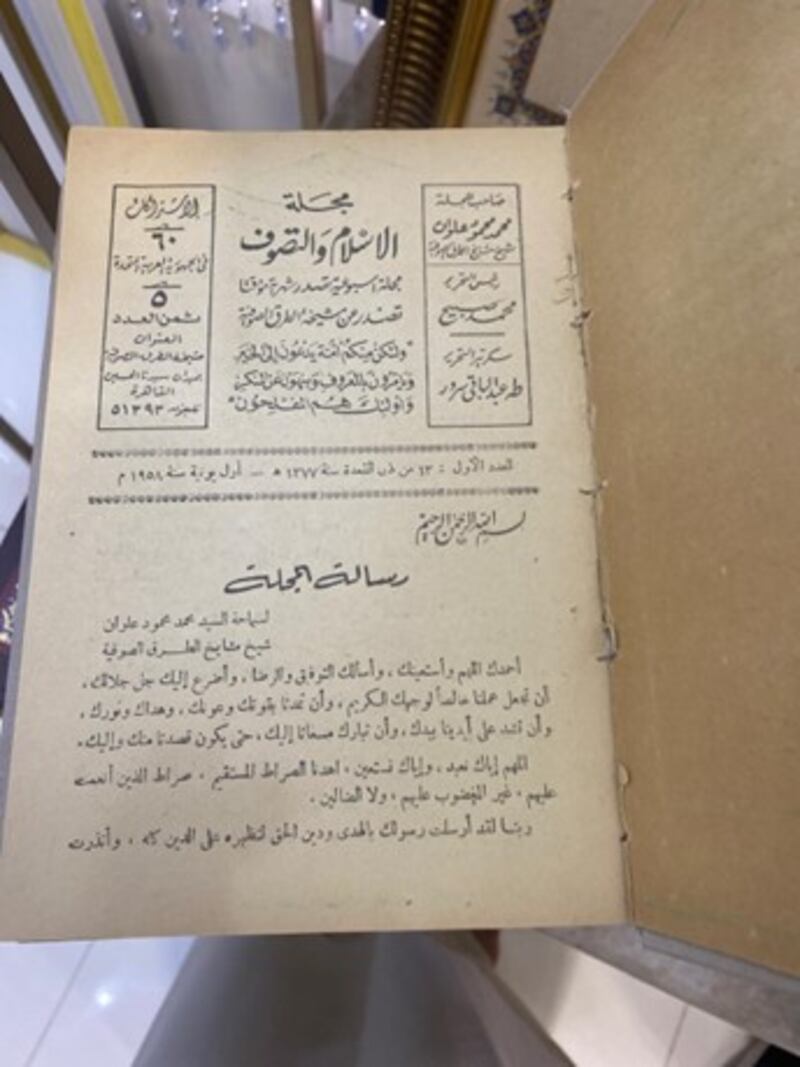 صاحب المجلة
محمد محمود علوان
شيخ مشايخ الطرق الصوفية
رئيس التحرير
محمد صبيح
سكرتير التحرير
طه عبد الباقي سرور
مجلة
الإسلام والتصوف
مجلة اسبوعية تصدر شهرية مؤقتا
تصدر عن مشيخة الطرق الصوفية
"ولتكن منكم أمة يدعون إلى الخير
ويأمرون بالمعروف وينهون عن المنكر
وأولئك هم المفلحون"
الاشتراك
٦٠
في الجمهورية العربية المتحدة
٥
ثمن العدد
العنوان
مشيخة الطرق الصوفية
بميدان سيدنا الحسين
القاهرة
٥١٣٩٣
العدد الأول : ١٣ من ذى القعدة سنة ١٣٧٧ هـ — أول يونية سنة ١٩٥٨ م
بسم الله الرحمن الرحيم
رسالة المجلة
لسماحة السيد محمد محمود علوان
شيخ مشايخ الطرق الصوفية
أحمدك اللهم وأستعينك ، وأسألك التوفيق والرضا ، وأضرع إليك جل جلالك ،
أن تجعل عملنا خالصاً لوجهك الكريم ، وأن تمدنا بقوتك وعونك ، وهداك ونورك ،
وأن تشد على أيدينا بيدك ، وأن تبارك مسعانا إليك ، حتى يكون قصدنا منك وإليك .
اللهم إياك نعبد ، وإياك نستعين ، اهدنا الصراط المستقيم ، صراط الذين أنعمت
عليهم ، غير المغضوب عليهم ، ولا الضالين .
ربنا لقد أرسلت رسولك بالهدى ودين الحق لتظهره على الدين كله ، وأنذرت